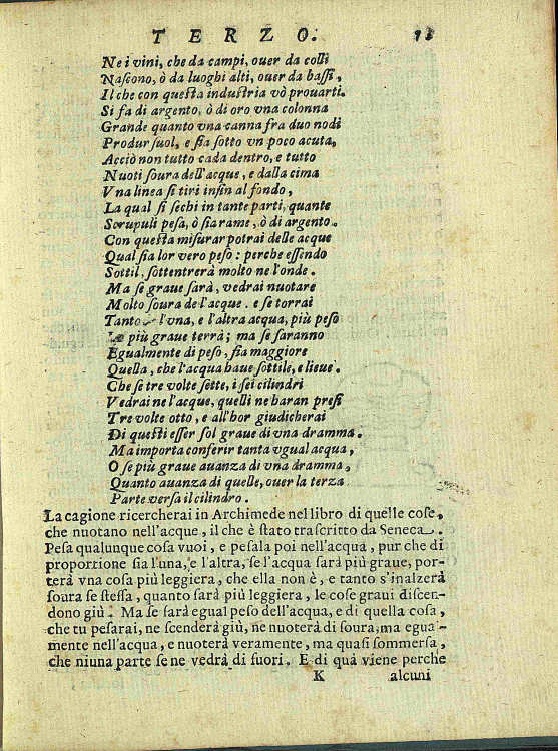 TERZO. 73
Ne i vini, che da campi, ouer da colli
Nascono, ò da luoghi alti, ouer da bassi,
Il che con questa industria vò prouarti.
Si fa di argento, ò di oro vna colonna
Grande quanto vna canna fra duo nodi
Produr suol, e sia sotto vn poco acuta,
Acciò non tutto cada dentro, e tutto
Nuoti soura dell'acque, e dalla cima
Vna linea si tiri infin al fondo,
La qual si sechi in tante parti, quante
Scrupuli pesa, ò sia rame, ò di argento.
Con questa misurar potrai delle acque
Qual sia lor vero peso: perche essendo
Sottil, sottentrerà molto ne l'onde.
Ma se graue sarà, vedrai nuotare
Molto soura de l'acque. e se torrai
Tanto l'vna, e l'altra acqua, più peso
La più graue terrà; ma se saranno
Egualmente di peso, sia maggiore
Quella, che l'acqua haue sottile, e lieue.
Che se tre volte sette, i sei cilindri
Vedrai ne l'acque, quelli ne haran presi
Tre volte otto, e all'hor giudicherai
Di questi esser sol graue di vna dramma.
Ma importa conferir tanta vgual acqua,
O se più graue auanza di vna dramma,
Quanto auanza di quelle, ouer la terza
Parte versa il cilindro.
La cagione ricercherai in Archimede nel libro di quelle cose,
che nuotano nell'acque, il che è stato trascritto da Seneca.
Pesa qualunque cosa vuoi, e pesala poi nell'acqua, pur che di
proportione sia l'una, e l'altra, se l'acqua sarà più graue, por-
terà vna cosa più leggiera, che ella non è, e tanto s'inalzerà
soura se stessa, quanto sarà più leggiera, le cose graui discen-
dono giù. Ma se sarà egual peso dell'acqua, e di quella cosa,
che tu pesarai, ne scenderà giù, ne nuoterà di soura, ma egual-
mente nell'acqua, e nuoterà veramente, ma quasi sommersa,
che niuna parte se ne vedrà di fuori. E di quà viene perche
K alcuni